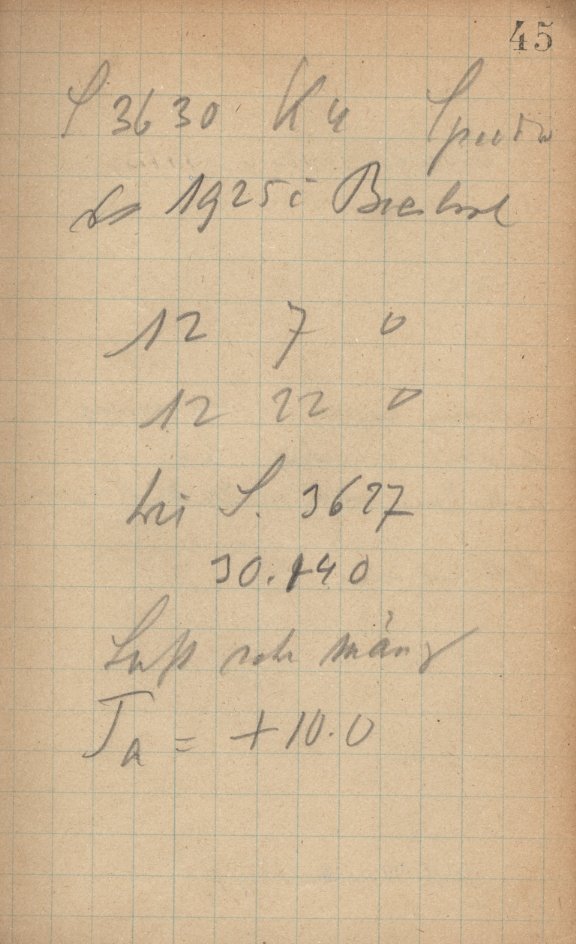 45
S 3630 K4
1925 i
12 7 0
12 22 0
bei S. 3627
30.140
Luft sehr mäß
Ta = +10.0